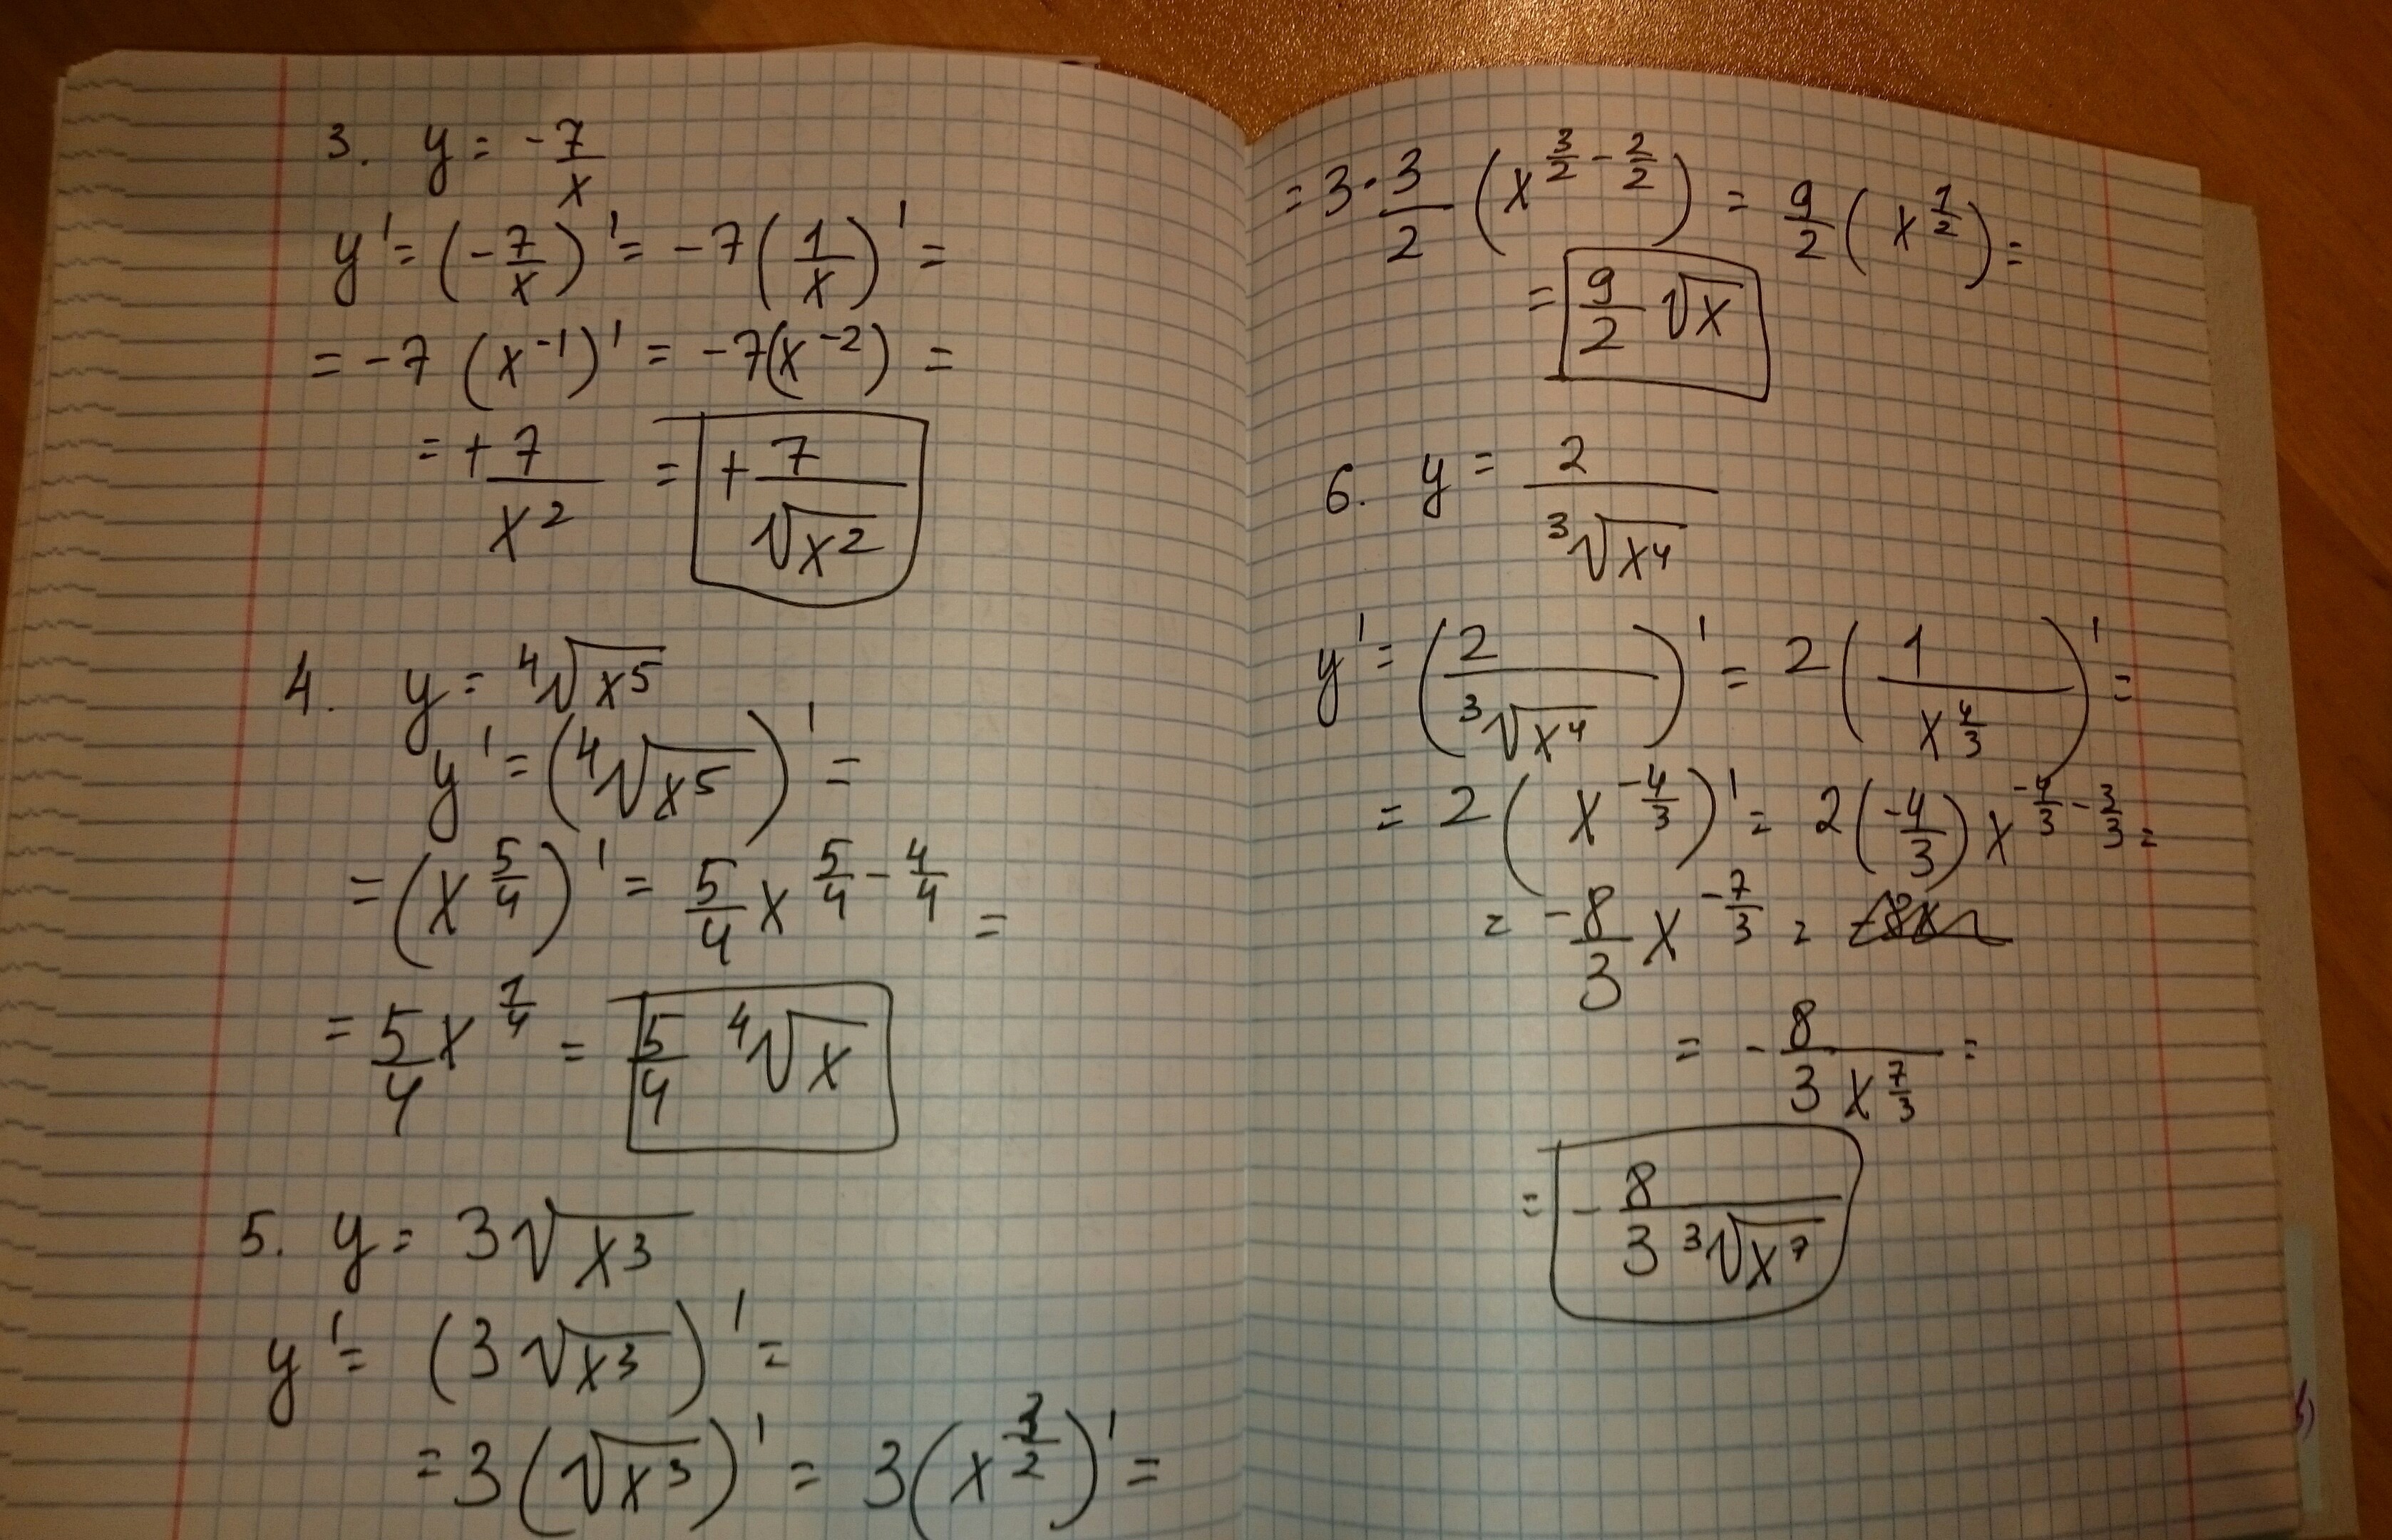 3. y = -7/x
y' = (-7/x)' = -7(1/x)' =
= -7 (x⁻¹)' = -7(x⁻²) =
= +7/x² = +7/√x²
4. y = ⁴√x⁵
y' = (⁴√x⁵)' =
= (x^(5/4))' = 5/4 x^(5/4 - 4/4) =
= 5/4 x^(1/4) = 5/4 ⁴√x
5. y = 3√x³
y' = (3√x³)' =
= 3(√x³)' = 3(x^(3/2))' =
= 3·3/2 (x^(3/2 - 2/2)) = 9/2 (x^(1/2)) =
= 9/2 √x
6. y = 2/³√x⁴
y' = (2/³√x⁴)' = 2(1/x^(4/3))' =
= 2(x^(-4/3))' = 2(-4/3)x^(-4/3 - 3/3) =
= -8/3 x^(-7/3) =
= -8/(3x^(7/3)) =
= -8/(3 ³√x⁷)